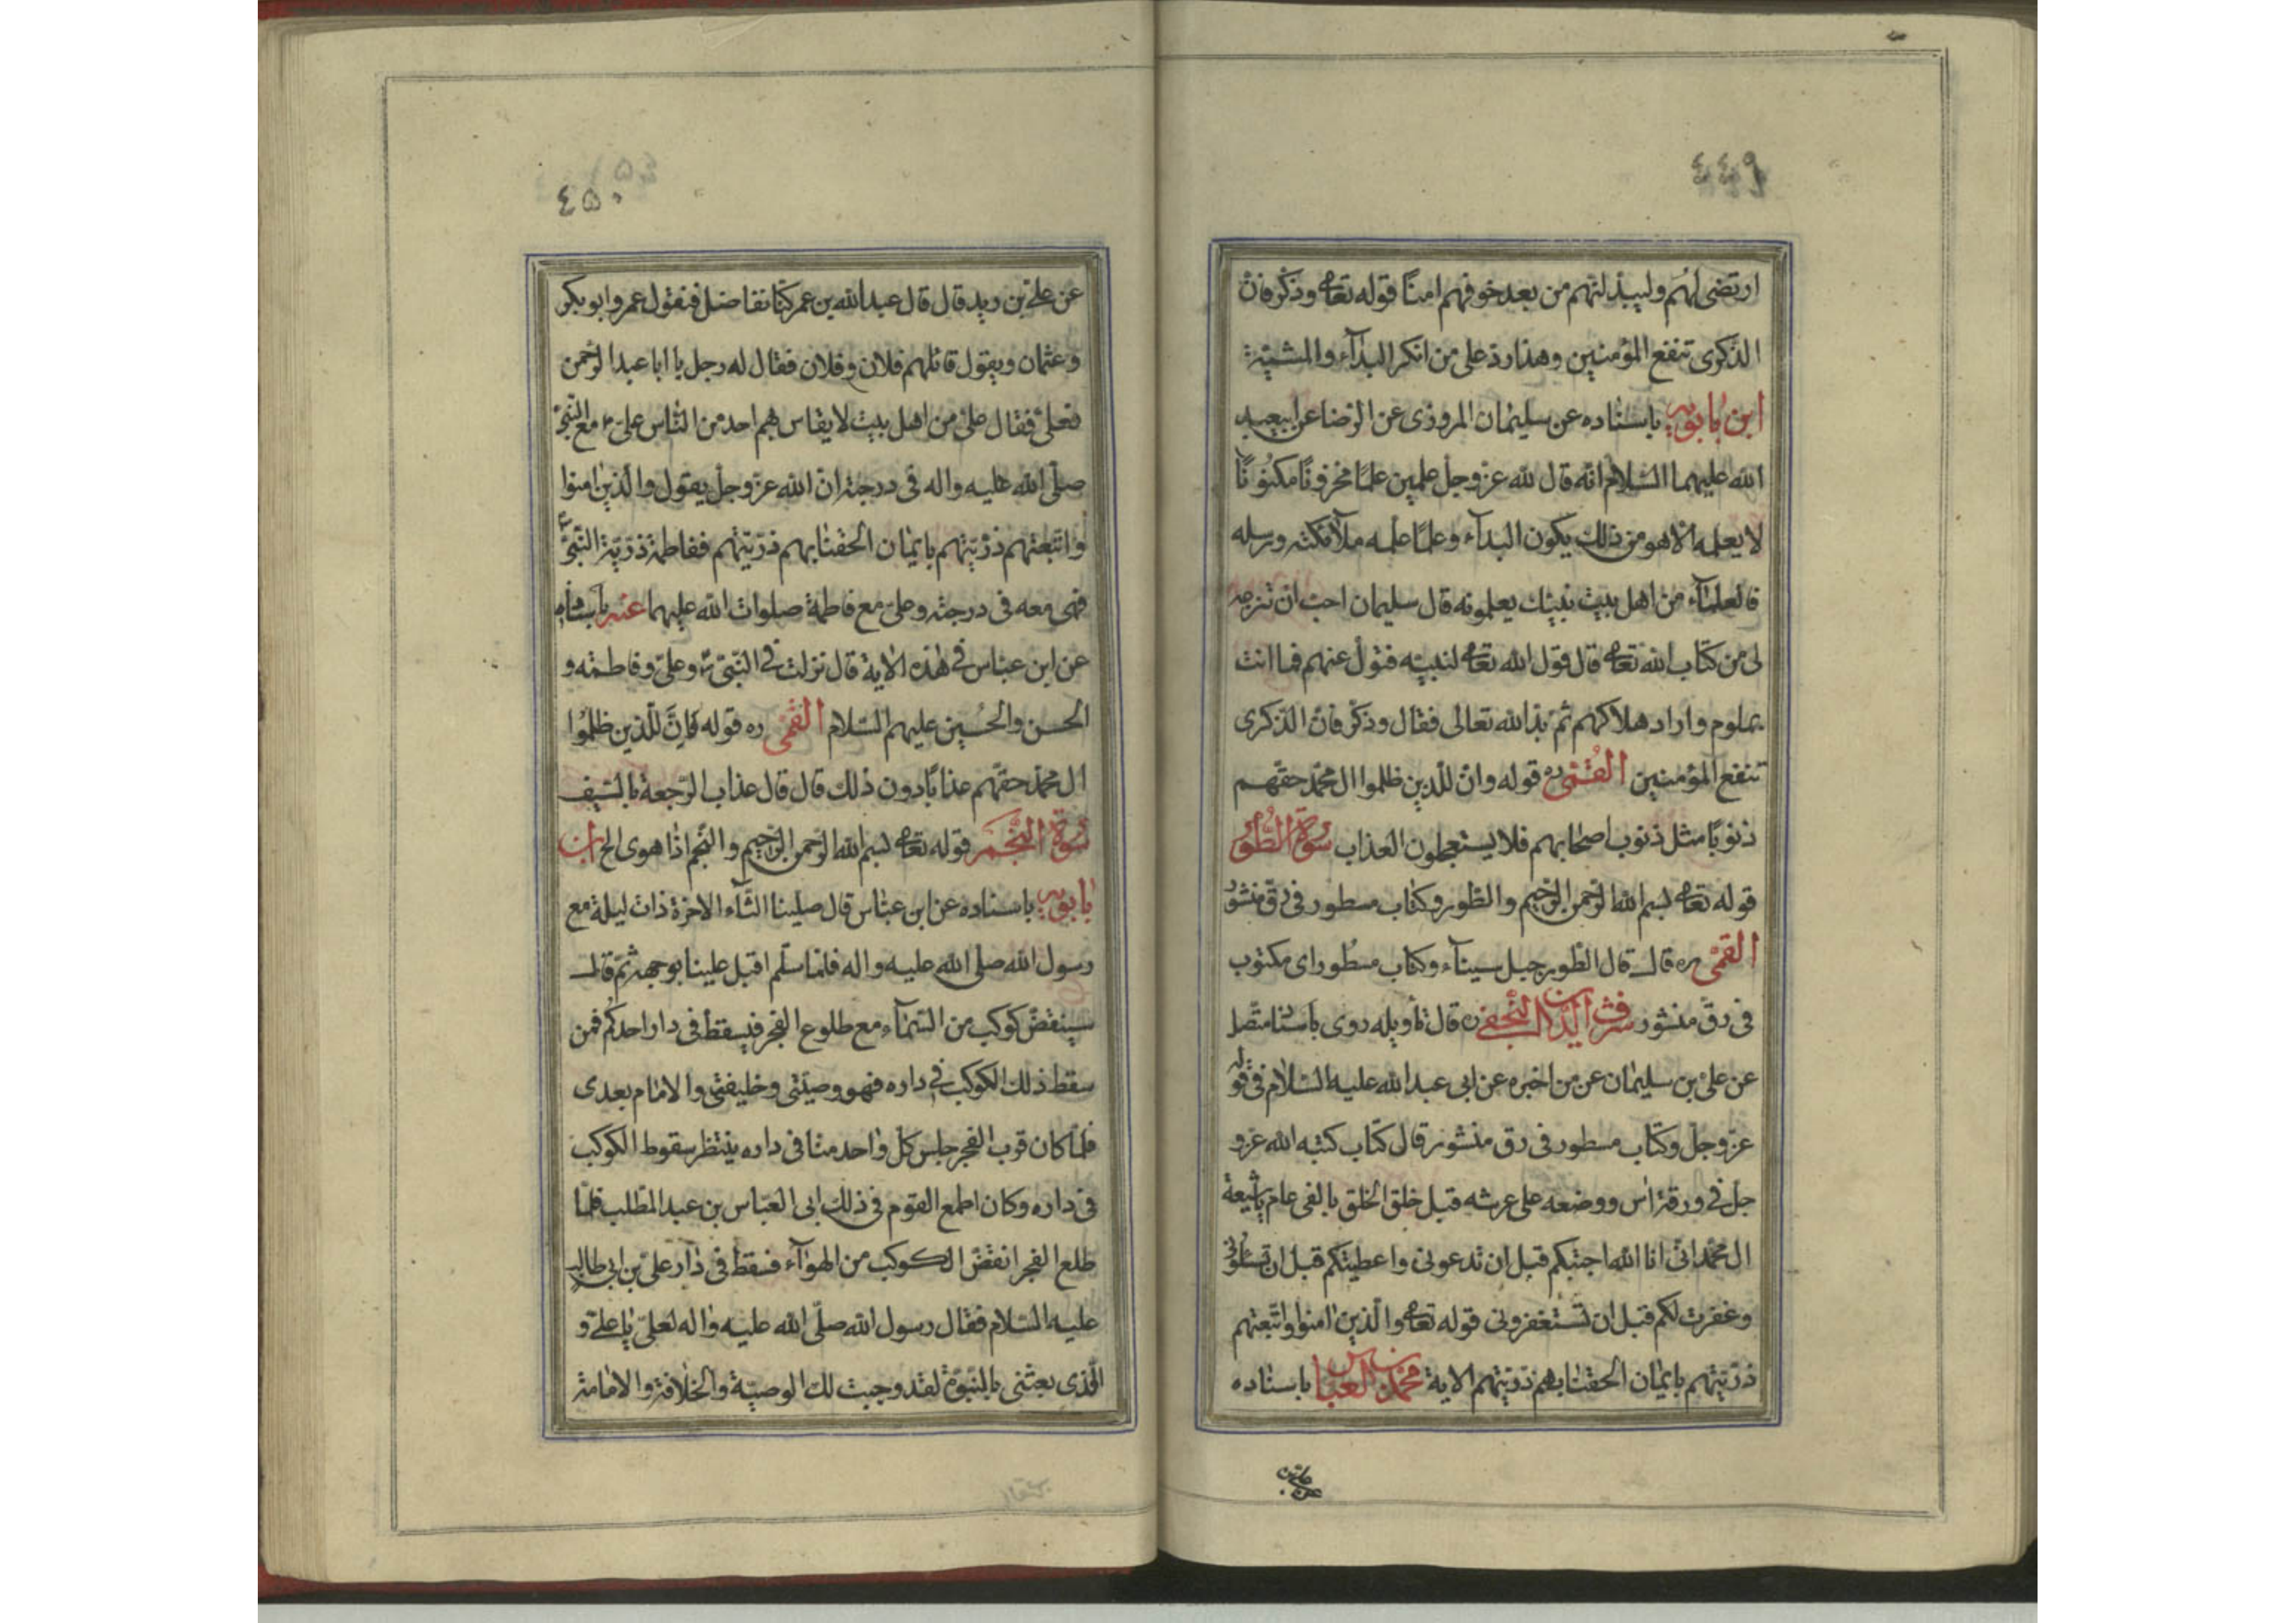 ٤٤٩
ارتضى لهم وليبدلنهم من بعد خوفهم امنًا قوله تعالى وذكر فان
الذكرى تنفع المؤمنين وهذا رد على من انكر البدآء والمشيّة
ابن بابويه باسناده عن سليمان المروزى عن الرضا عن ابيعبد
الله عليهما السلام انّه قال لله عزّوجلّ علمين علمًا مخزونًا مكنُونًا
لا يعلمه الا هو من ذلك يكون البدآء وعلمًا علمه ملآئكته ورسله
فالعلمآء من اهل بيت نبيّك يعلمونه قال سليمان احبّ ان تنزعه
لى من كتاب الله تعالى قال قول الله تعالى لنبيّه فتولّ عنهم فما انت
بملوم واراد هلاكهم ثمّ بدا لله تعالى فقال وذكّر فانّ الذكرى
تنفع المؤمنين القمّى ره قوله وانّ للّذين ظلموا ال محمّد حقّهم
ذنوبًا مثل ذنوب اصحابهم فلا يستعجلون العذاب سُورة الطُّور
قوله تعالى بسم الله الرّحمن الرّحيم والطّور وكتاب مسطور فى رقّ منشور
القمّى ره قال قال الطّور جبل سيناء وكتاب مسطور اى مكتوب
فى رقّ منشور شرف الدّين النّجفى ره قال تأويله روى باسناد متّصل
عن علىّ بن سليمان عن من اخبره عن ابى عبدالله عليه السّلام فى قوله
عزّوجلّ وكتاب مسطور فى رق منشور قال كتاب كتبه الله عزّو
جلّ فى ورقة اس ووضعه على عرشه قبل خلق الخلق بالفى عام يا شيعة
ال محمّد انّى انا الله اجبتكم قبل ان تدعونى واعطيتكم قبل ان تسئلونى
وغفرت لكم قبل ان تستغفرونى قوله تعالى والّذين امنوا واتّبعتهم
ذرّيّتهم بايمان الحقنا بهم ذرّيّتهم الاية محمّد بن العبّاس باسناده
عن علىّ بن
٤٥٠
عن علىّ بن زيد قال قال عبدالله بن عمر كنّا نفاضل فنقول عمر وابوبكر
وعثمان ويقول قائلهم فلان وفلان فقال له رجل يا ابا عبد الرّحمن
فعلىّ فقال علىّ من اهل بيت لا يقاس بهم احد من النّاس علىّ ع مع النّبىّ
صلّى الله عليه واله فى درجته انّ الله عزّوجلّ يقول والّذين امنوا
واتّبعتهم ذرّيّتهم بايمان الحقنا بهم ذرّيّتهم ففاطمة ذرّيّة النّبىّ
فهى معه فى درجته وعلىّ مع فاطمة صلوات الله عليهما عنه باسناده
عن ابن عبّاس فى هذه الاية قال نزلت فى النّبىّ ص وعلىّ وفاطمة و
الحسن والحسين عليهم السّلام القمّى ره قوله فانّ للّذين ظلموا
ال محمّد حقّهم عذابًا دون ذلك قال قال عذاب الرّجعة بالسّيف
سُورة النَّجم قوله تعالى بسم الله الرّحمن الرّحيم والنّجم اذا هوى الخ ابن
بابويه باسناده عن ابن عبّاس قال صلينا العشآء الاخرة ذات ليلة مع
رسول الله صلى الله عليه واله فلمّا سلّم اقبل علينا بوجهه ثمّ قال
سينقضّ كوكب من السّمآء مع طلوع الفجر فيسقط فى دار احدكم فمن
سقط ذلك الكوكب فى داره فهو وصيّتى وخليفتى والامام بعدى
فلمّا كان قرب الفجر جلس كلّ واحد منّا فى داره ينتظر سقوط الكوكب
فى داره وكان اطمع القوم فى ذلك ابى العبّاس بن عبد المطّلب فلمّا
طلع الفجر انقضّ الكوكب من الهوآء فسقط فى دار علىّ بن ابى طالب
عليه السّلام فقال رسول الله صلّى الله عليه واله لعلىّ يا علىّ و
الّذى بعثنى بالنّبوّة لقد وجبت لك الوصيّة والخلافة والامامة